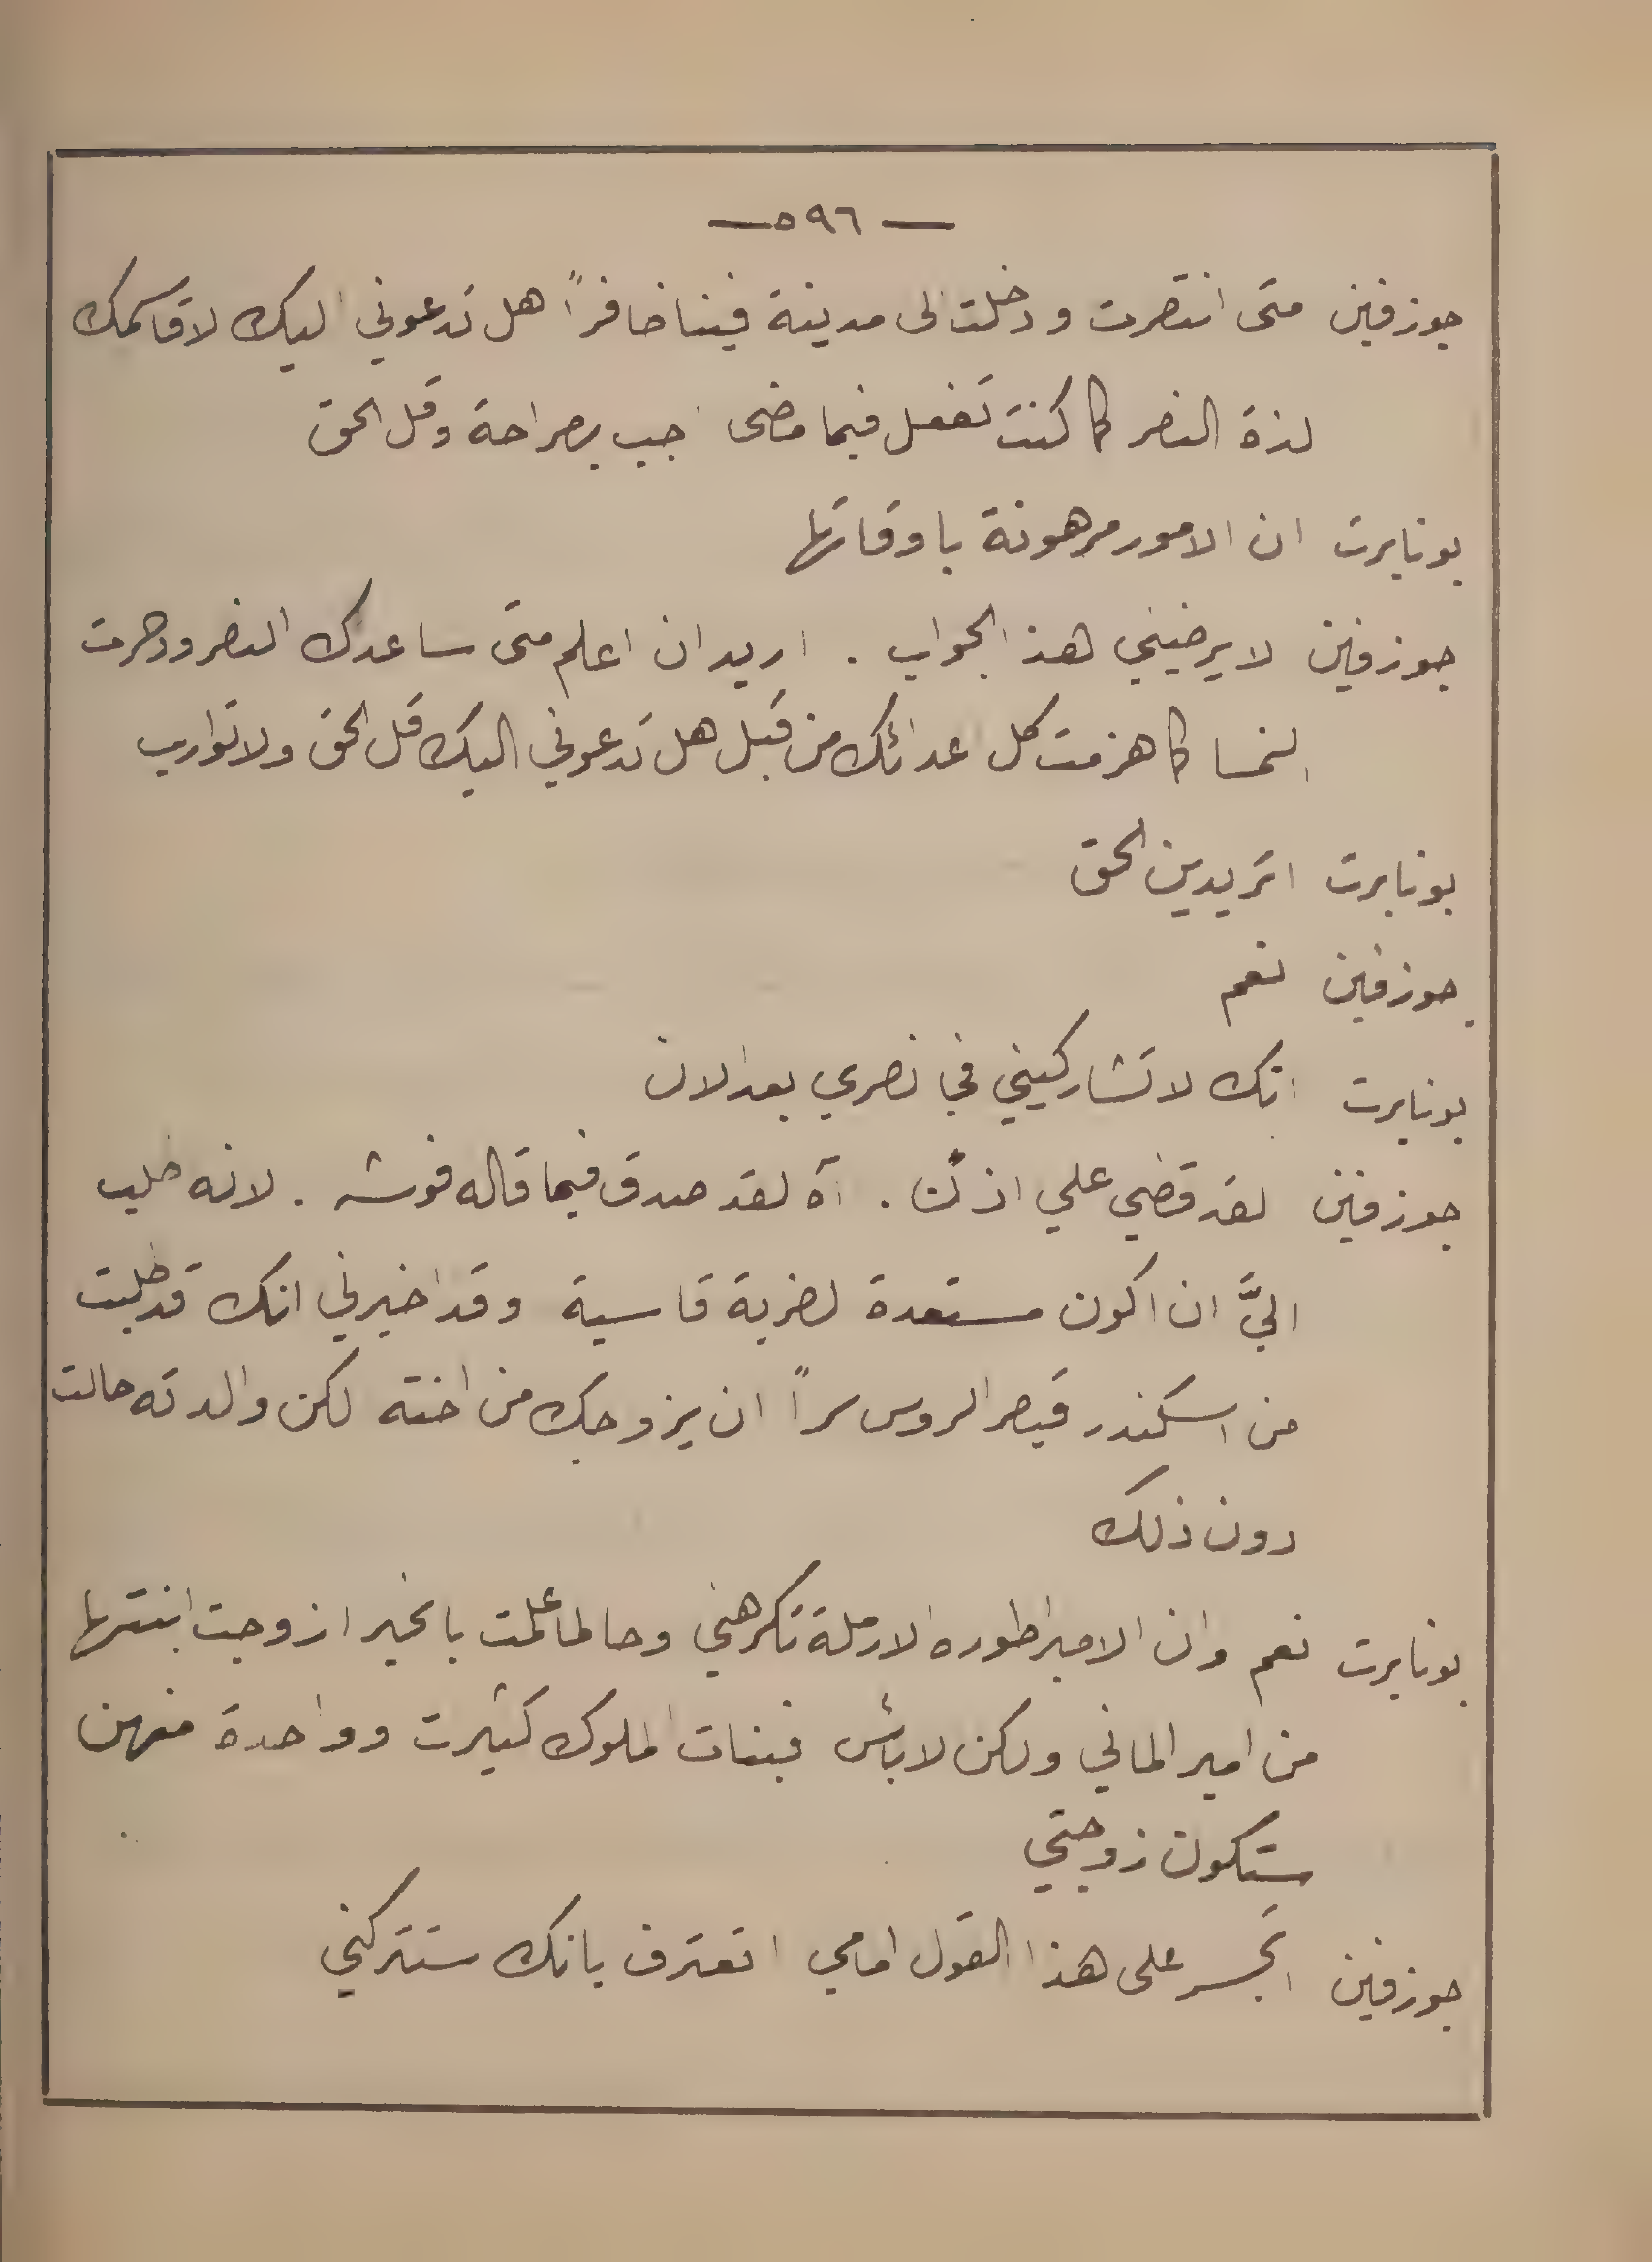 — ٥٩٦ —
جوزفين متى انتصرت ودخلت الى مدينة فيينا ظافراً هل تدعوني اليك لاقاسمك
لذة النصر كما كنت تفعل فيما مضى اجب بصراحة وقل الحق
بونابرت ان الامور مرهونة باوقاتها
جوزفين لا يرضيني هذا الجواب . اريد ان اعلم متى ساعدك النصر ودحرت
النمسا كما هزمت كل اعدائك من قبل هل تدعوني اليك قل الحق ولا توارب
بونابرت اتريدين الحق
جوزفين نعم
بونابرت انك لا تشاركيني في نصري بعد الان
جوزفين لقد قضي علي اذن . آه لقد صدق فيما قاله فوشه . لانه طلب
اليَّ ان اكون مستعدة لضربة قاسية وقد اخبرني انك قد طلبت
من اسكندر قيصر الروس سراً ان يزوجك من اخته لكن والدته حالت
دون ذلك
بونابرت نعم وان الامبراطوره الارملة تكرهني وحالما علمت بالخبر ازوجت ابنتها
من امير الماني ولكن لا بأس فبنات الملوك كثيرت وواحدة منهن
ستكون زوجتي
جوزفين اتجسر على هذا القول امامي اتعترف بانك ستتركني